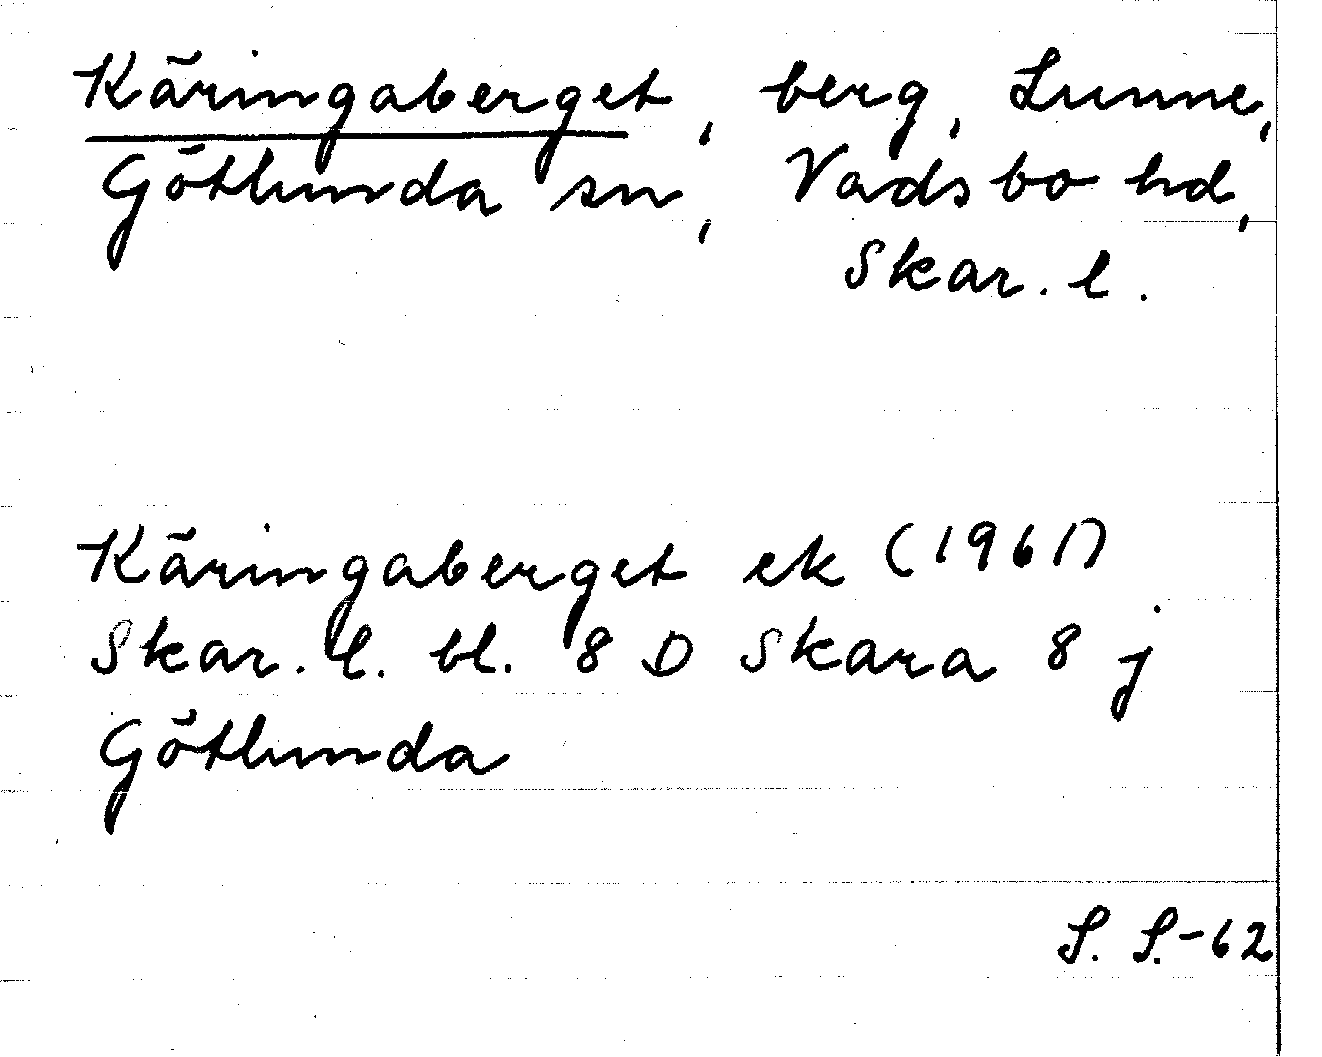 Käringaberget, berg, Lunne,
Götlunda sn, Vadsbo hd,
Skar. l.
Käringaberget ek (1961)
Skar. l. bl. 8 D Skara 8 j
Götlunda
S. S.-62